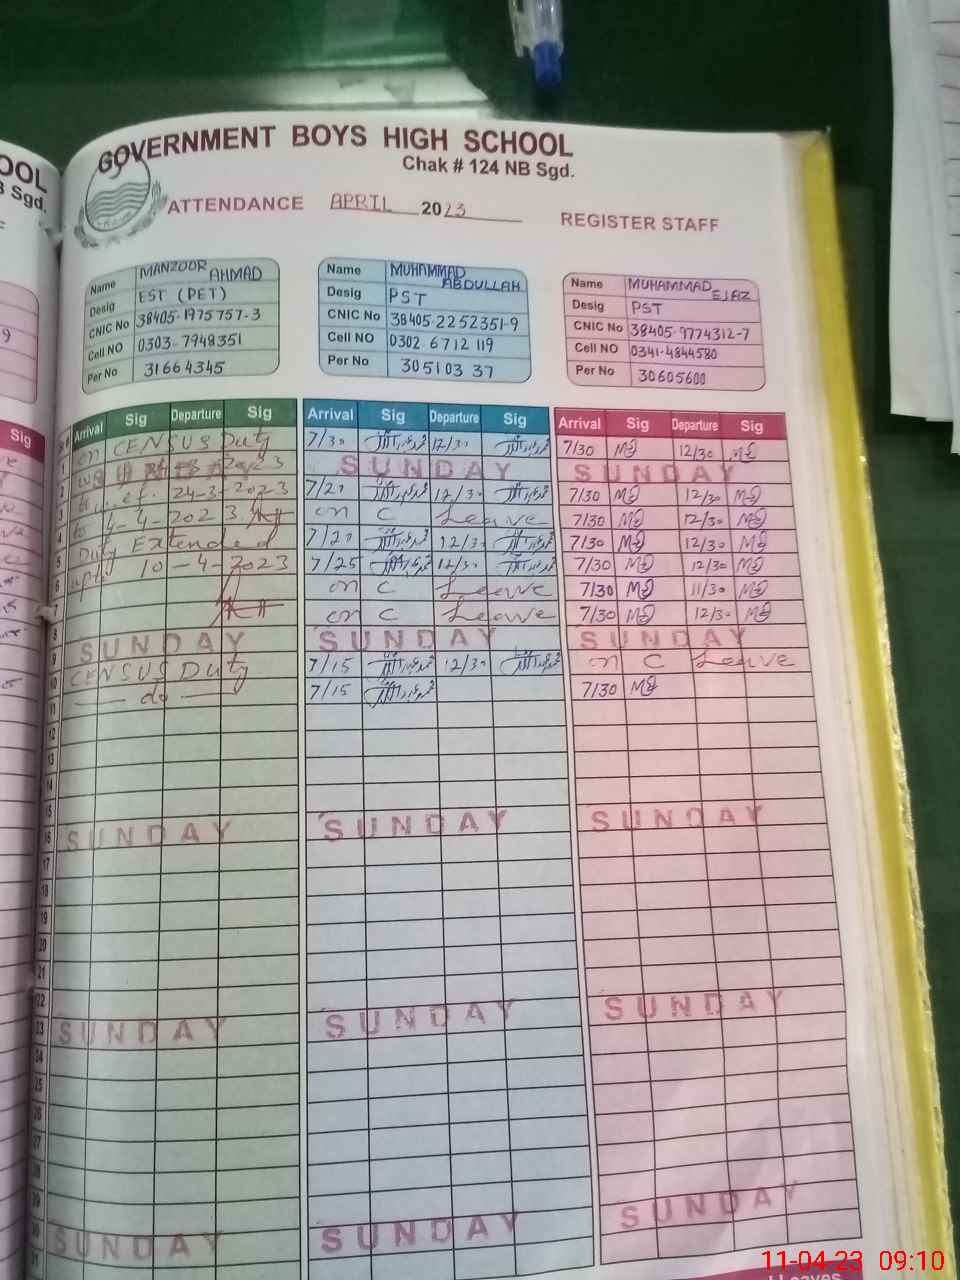 GOVERNMENT BOYS HIGH SCHOOL
Chak # 124 NB Sgd.
ATTENDANCE APRIL 2023 REGISTER STAFF
OOL
Sgd.
9
Sig
Name MANZOOR AHMAD
Desig EST (PET)
CNIC No 38405-1975757-3
Cell NO 0303-7948351
Per No 31664345
Name MUHAMMAD ABDULLAH
Desig PST
CNIC No 38405-2252351-9
Cell NO 0302-6712119
Per No 30510337
Name MUHAMMAD EJAZ
Desig PST
CNIC No 38405-9774312-7
Cell NO 0341-4844580
Per No 30605600
Arrival Sig Departure Sig Arrival Sig Departure Sig Arrival Sig Departure Sig
1 on CENSUS Duty 7/30 12/30 7/30 12/30
2 SUNDAY SUNDAY
3 24-3-2023 7/20 12/30 7/30 12/30
4 to 4-4-2023 on C Leave 7/30 12/30
5 Duty Extended 7/20 12/30 7/30 12/30
6 upto 10-4-2023 7/25 12/30 7/30 12/30
7 on C Leave 7/30 11/30
8 on C Leave 7/30 12/30
9 SUNDAY SUNDAY SUNDAY
10 CENSUS Duty 7/15 12/30 on C Leave
11 — do — 7/15 7/30
12
13
14
15
16 SUNDAY SUNDAY SUNDAY
17
18
19
20
21
22
23 SUNDAY SUNDAY SUNDAY
24
25
26
27
28
29
30 SUNDAY SUNDAY SUNDAY
31
Leaves
11-04-23 09:10